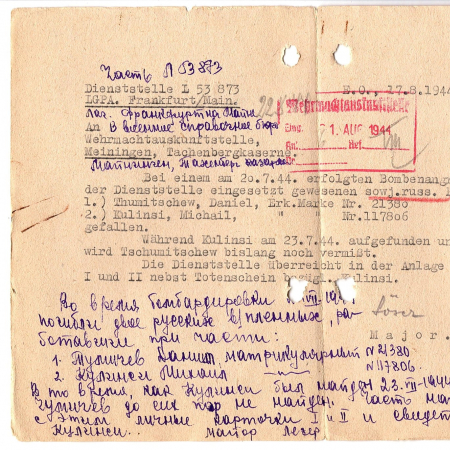 Часть Л 53873
Dienststelle L 53 873
E.O., 17.8.1944
LGPA. Frankfurt/Main.
Wehrmachtauskunftstelle
An В военное справочное бюро
Eing. 21. AUG 1944
Wehrmachtauskunftstelle,
Meiningen, Tachenbergkaserne.
Bei einem am 20.7.44 erfolgten Bombenang
der Dienststelle eingesetzt gewesenen sowj.russ.
1.) Thumitschew, Daniel, Erk.Marke Nr. 21380
2.) Kulinsi, Michail, Nr.117806
gefallen.
Während Kulinsi am 23.7.44 aufgefunden
wird Tschumitschew bislang noch vermißt.
Die Dienststelle überreicht in der Anlage
I und II nebst Totenschein Kulinsi.
Во время бомбардировки
погибли двое русских в/пленных, ра-
Major.
ботавших при части:
1. Тумичев Даниил, матрикулярный N 21380
2. Кулинси Михаил N 117806
В то время, как Кулинси был найден 23.VII-1944
чумичев до сих пор не найден. Часть
с этим личные карточки I и II и свидет
Кулинси.. майор